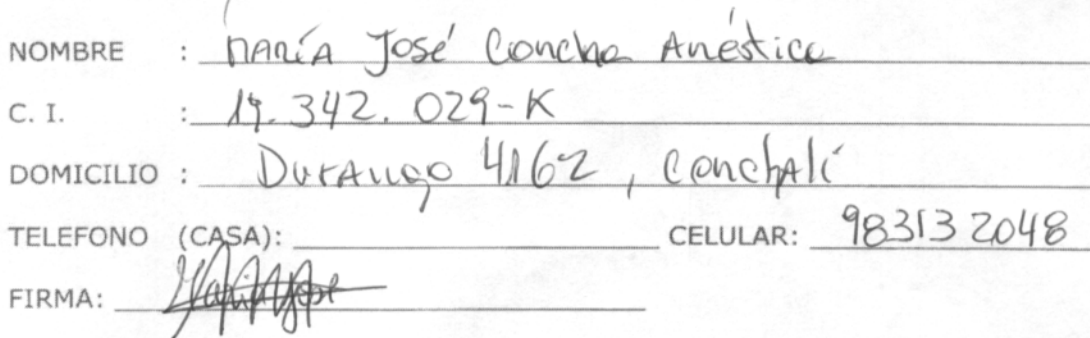 NOMBRE : MARÍA José Concha Anéstica
C. I. : 19.342.029-K
DOMICILIO : Durango 4162, Conchalí
TELEFONO (CASA): CELULAR: 98313 2048
FIRMA: